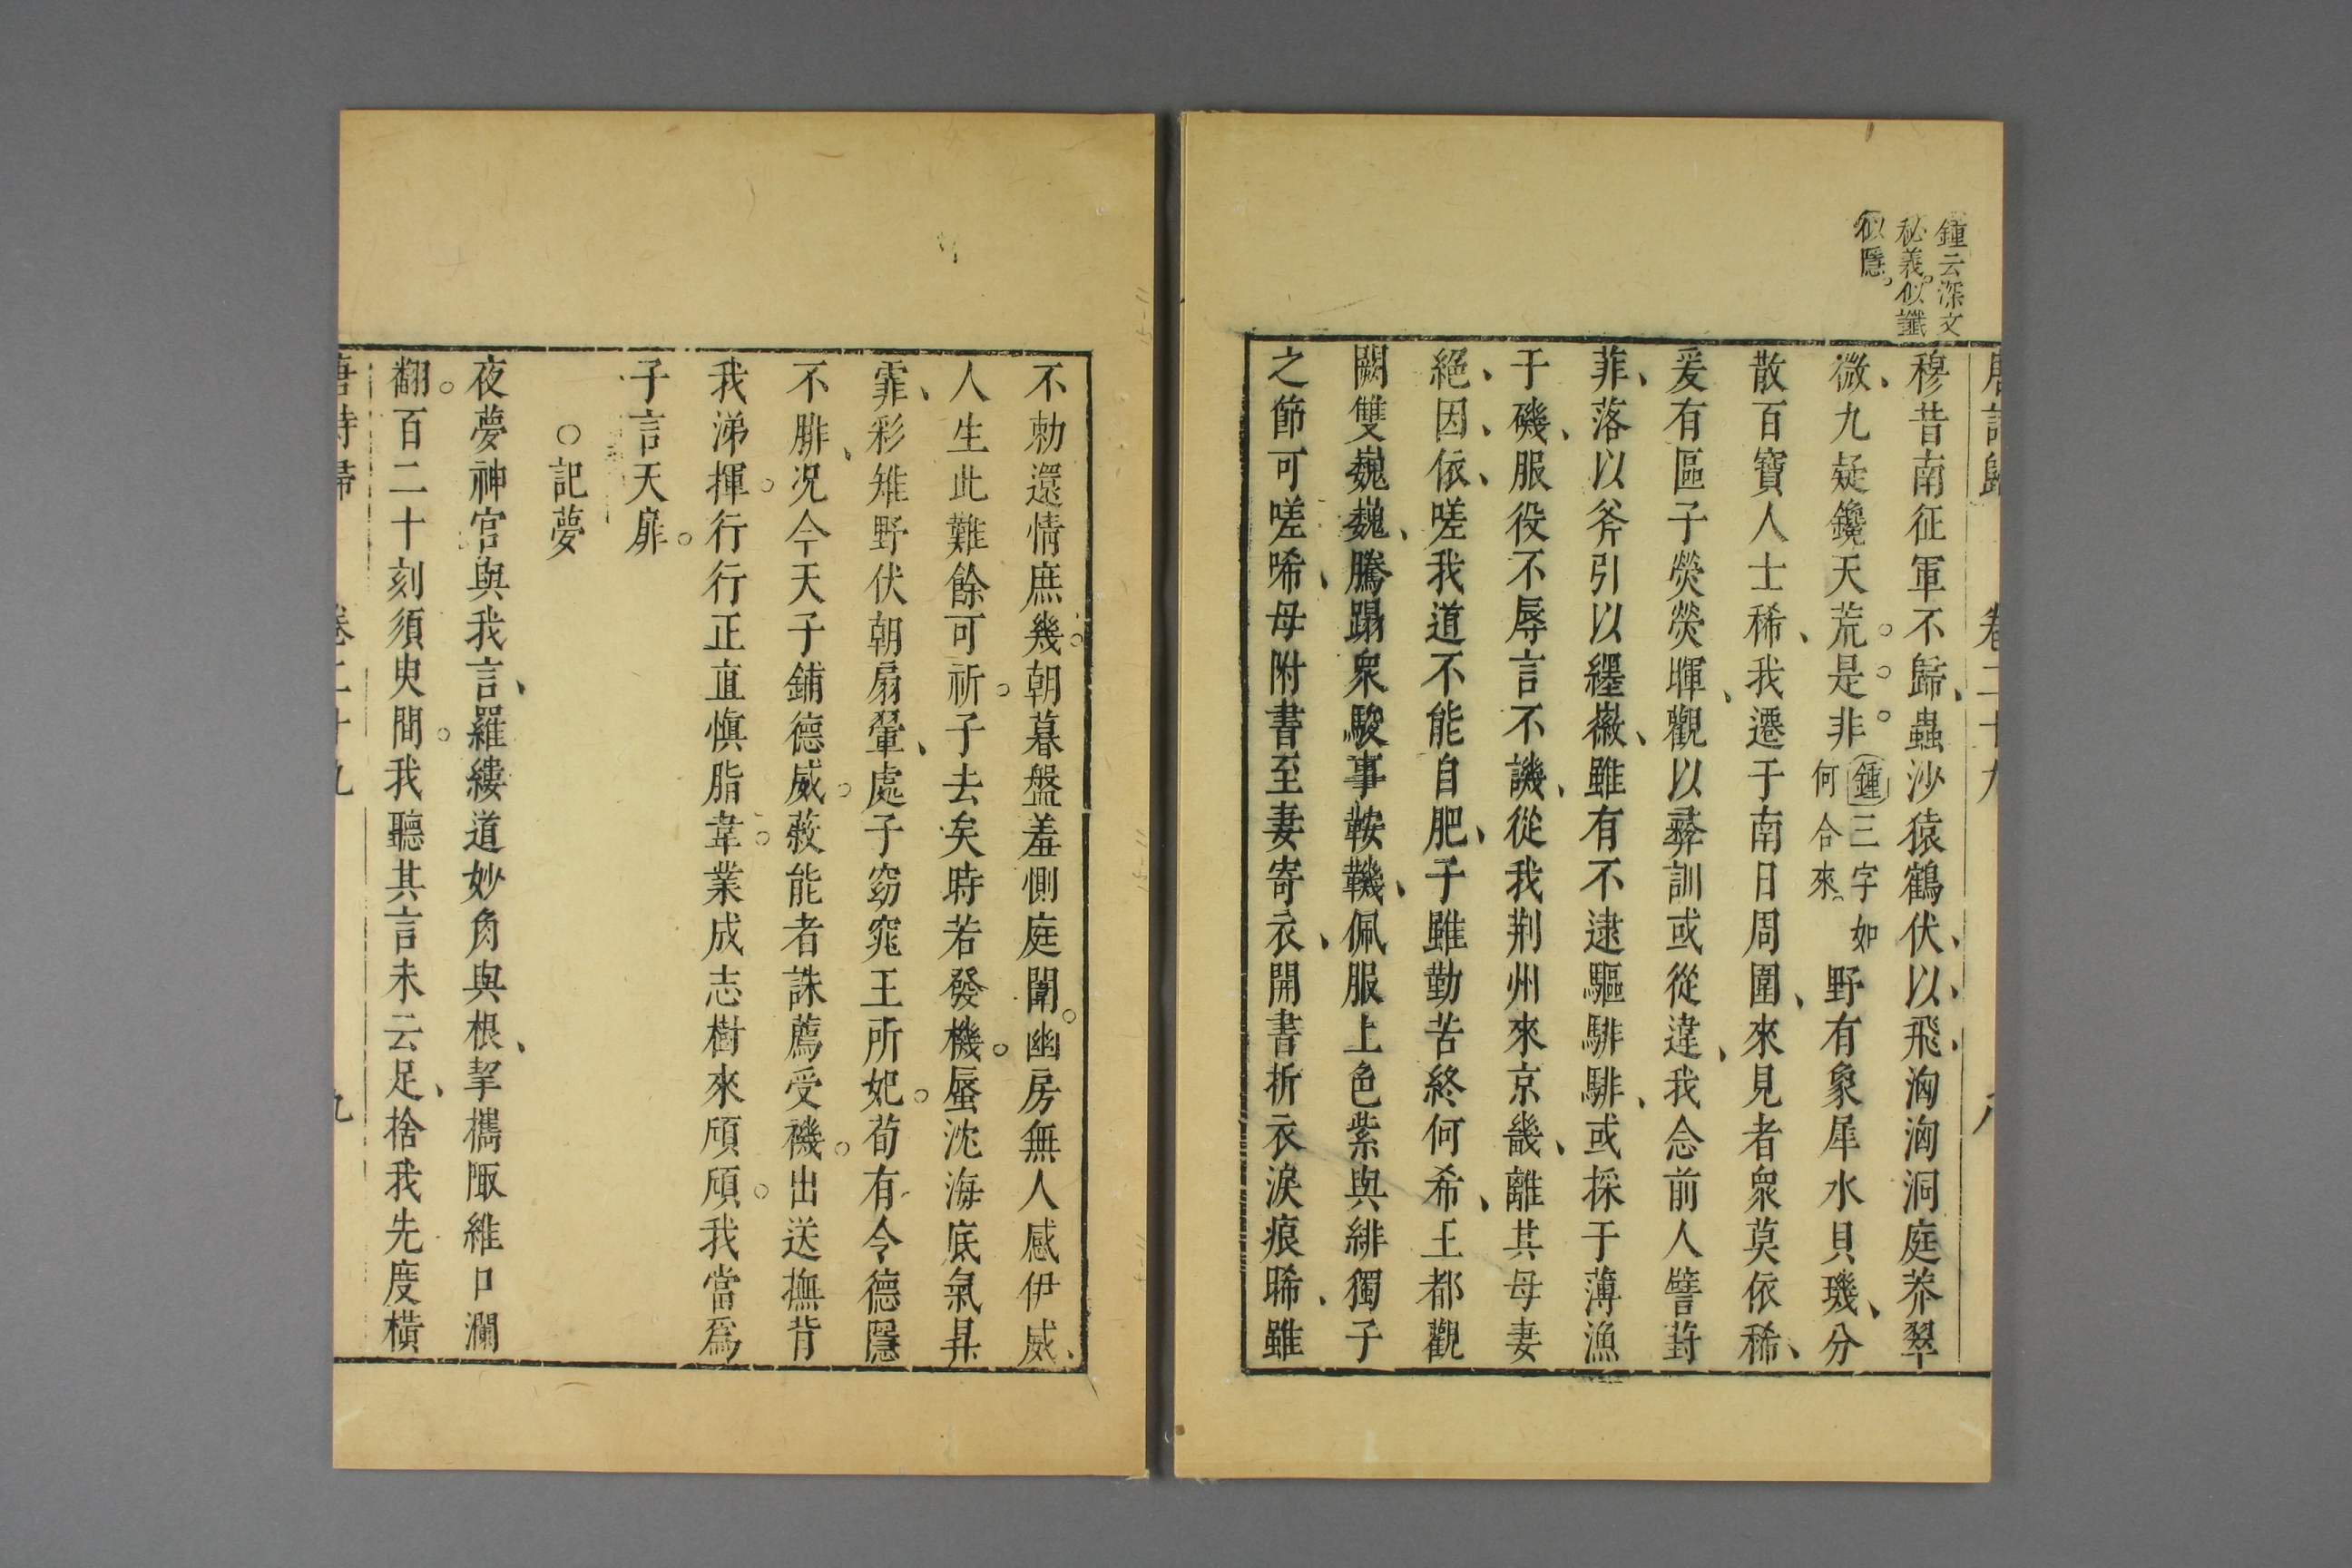 鍾云深文
秘義。似讖
似隱。
唐詩歸 卷二十九 八
穆昔南征軍不歸、蟲沙猿鶴伏、以、飛、洶洶洞庭莽翠
微、九疑鑱天荒。是。非。鍾三字如何合來。野有象犀水貝璣、分
散百寶人士稀、我遷于南日周圍、來見者衆莫依稀、
爰有區子熒熒暉、觀以彝訓或從違、我念前人譬葑
菲、落以斧引以纆徽、雖有不逮驅騑騑、或採于薄漁
于磯、服役不辱言不譏、從我荆州來京畿、離其母妻
絕、因、依、嗟我道不能自肥、子雖勤苦終何希、王都觀
闕雙巍巍、騰蹋衆駿事鞍鞿、佩服上色紫與緋獨子
之節可嗟唏、母附書至妻寄衣、開書拆衣淚痕晞、雖
不勑還情庶幾。朝暮盤羞惻庭闈。幽房無人感伊威、
人生此難餘可祈。子去矣時若發機。蜃沈海底氣昇
霏、彩雉野伏朝扇翬、處子窈窕王所妃。苟有令德隱
不腓、况今天子鋪德威。蔽能者誅薦受禨。出送撫背
我涕揮。行行正直愼脂韋。業成志樹來頎頎。我當爲
子言天扉。
○記夢
夜夢神官與我言、羅縷道妙角與根、挈攜陬維口瀾
翻。百二十刻須臾間。我聽其言未云足、捨我先度橫
唐詩歸 卷二十九 九